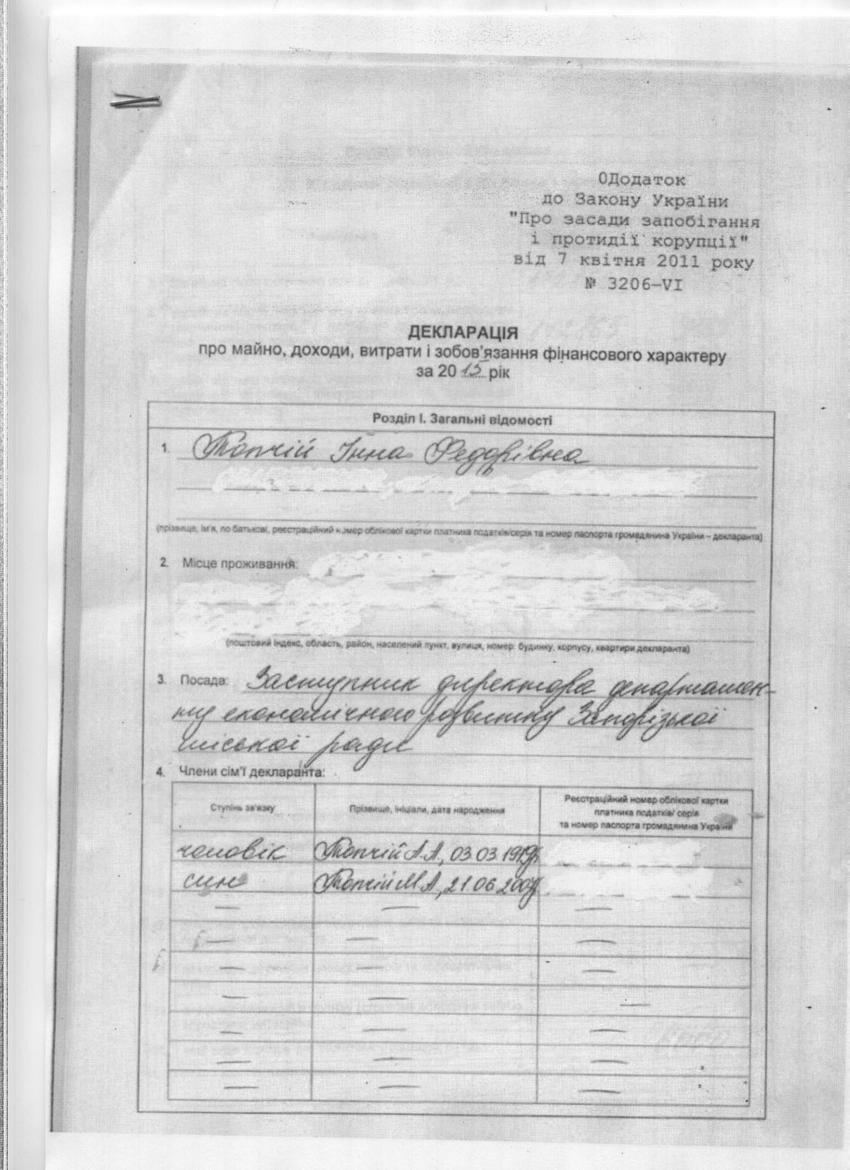 0Додаток
до Закону України
"Про засади запобігання
і протидії корупції"
від 7 квітня 2011 року
№ 3206-VI
ДЕКЛАРАЦІЯ
про майно, доходи, витрати і зобов'язання фінансового характеру
за 2015 рік
Розділ І. Загальні відомості
1. Топчій Інна Федорівна
(прізвище, ім'я, по батькові, реєстраційний номер облікової картки платника податків/серія та номер паспорта громадянина України – декларанта)
2. Місце проживання:
(поштовий індекс, область, район, населений пункт, вулиця, номер: будинку, корпусу, квартири декларанта)
3. Посада: Заступник директора департамен-
ту економічного розвитку Запорізької
міської ради
4. Члени сім'ї декларанта:
Ступінь зв'язку
Прізвище, ініціали, дата народження
Реєстраційний номер облікової картки
платника податків/ серія
та номер паспорта громадянина України
чоловік Топчій А.А, 03.03
син Топчій М.А, 21.06